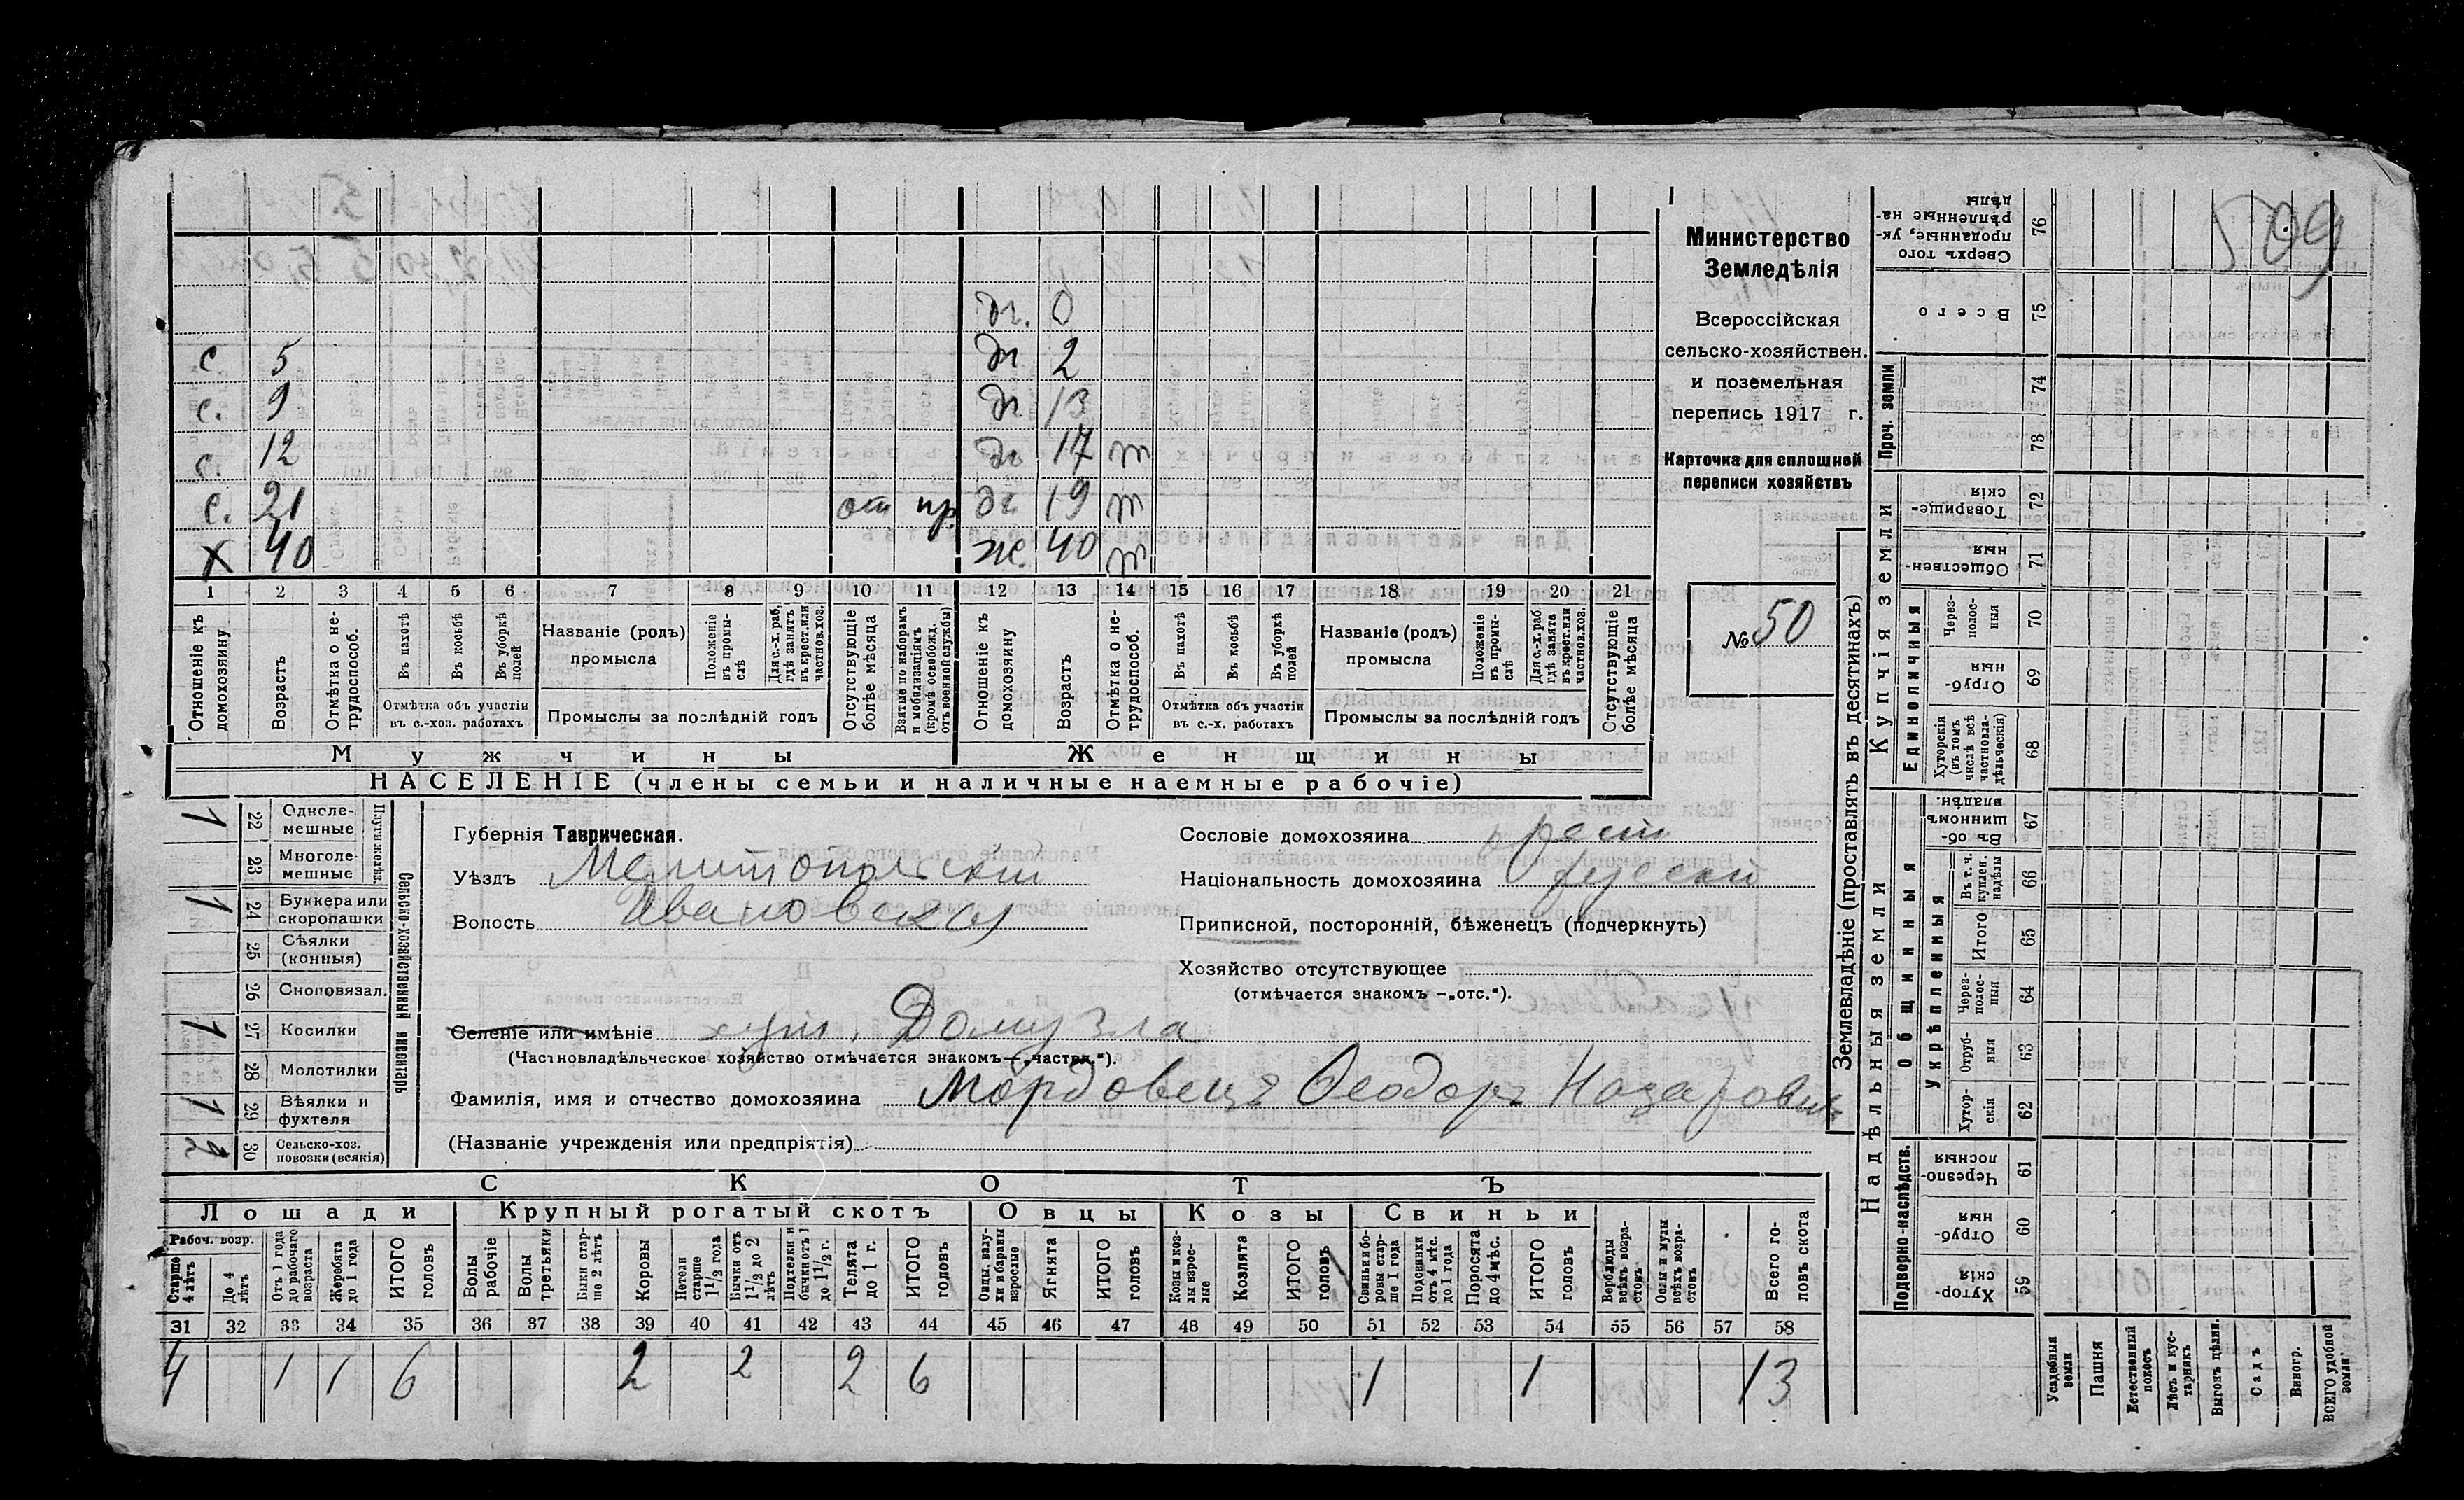 509
Министерство
Земледѣлія
Всероссійская
сельско-хозяйствен.
и поземельная
перепись 1917 г.
Карточка для сплошной
переписи хозяйствъ
№ 50
дч. 0
с 5 дч 2
с. 9 дч 13
с. 12 дч 17 т
с. 21 от пр. дч 19 т
х 40 же. 40 т
1 2 3 4 5 6 7 8 9 10 11 12 13 14 15 16 17 18 19 20 21
Отношеніе къ домохозяину
Возрастъ
Отмѣтка о не-трудоспособ.
Въ пахотѣ
Въ косьбѣ
Въ уборкѣ полей
Отмѣтка объ участіи
въ с.-хоз. работахъ
Названіе (родъ)
промысла
Положеніе въ промы-слѣ
Для с.-х. раб. гдѣ занятъ въ крест. или частнов. хоз.
Промыслы за послѣдній годъ
Отсутствующіе болѣе мѣсяца
Взятые по наборамъ и мобилизаціямъ (кромѣ освобожд. отъ военной службы)
Отношеніе къ домохозяину
Возрастъ
Отмѣтка о не-трудоспособ.
Въ пахотѣ
Въ косьбѣ
Въ уборкѣ полей
Отмѣтка объ участіи
въ с.-х. работахъ
Названіе (родъ)
промысла
Положеніе въ промы-слѣ
Для с.-х. раб. гдѣ занята въ крест. или частнов. хоз.
Промыслы за послѣдній годъ
Отсутствующіе болѣе мѣсяца
Мужчины Женщины
НАСЕЛЕНІЕ (члены семьи и наличные наемные рабочіе)
Сельско-хозяйственный инвентарь
Плуги желѣз.
1 22 Одноле-мешные
23 Многоле-мешные
1 24 Буккера или скоропашки
25 Сѣялки (конныя)
26 Сноповязал.
1 27 Косилки
28 Молотилки
1 29 Вѣялки и фухтеля
2 30 Сельско-хоз. повозки (всякія)
Губернія Таврическая.
Уѣздъ Мелитопольскій
Волость Ивановская
Сословіе домохозяина крест
Національность домохозяина русскій
Приписной, посторонній, бѣженецъ (подчеркнуть)
Хозяйство отсутствующее
(отмѣчается знакомъ — „отс.“).
Селеніе или имѣніе хут. Домузла
(Частновладѣльческое хозяйство отмѣчается знакомъ — „частвл.“).
Фамилія, имя и отчество домохозяина Мордовецъ Ѳеодоръ Назаровичъ
(Названіе учрежденія или предпріятія)
СКОТЪ
Лошади Крупный рогатый скотъ Овцы Козы Свиньи
Рабоч. возр.
Старше 4 лѣтъ
До 4 лѣтъ
Отъ 1 года до рабочаго возраста
Жеребята до 1 года
ИТОГО головъ
Волы рабочіе
Волы третьяки
Быки стар-ше 2 лѣтъ
Коровы
Нетели старше 1 1/2 года
Бычки отъ 1 1/2 до 2 лѣтъ
Подтелки и бычки отъ 1 до 1 1/2 г.
Телята до 1 г.
ИТОГО головъ
Овцы, валу-хи и бараны взрослые
Ягнята
ИТОГО головъ
Козы и коз-лы взрос-лые
Козлята
ИТОГО головъ
Свиньи и бо-ровы стар-ше 1 года
Подсвинки отъ 4 мѣс. до 1 года
Поросята до 4 мѣс.
ИТОГО головъ
Верблюды всѣхъ возра-стовъ
Ослы и мулы всѣхъ возра-стовъ
Всего го-ловъ скота
31 32 33 34 35 36 37 38 39 40 41 42 43 44 45 46 47 48 49 50 51 52 53 54 55 56 57 58
4 1 1 6 2 2 2 6 1 1 13
Землевладѣніе (проставлять въ десятинахъ)
Купчія земли
Надѣльныя земли
Сверхъ того проданные, ук-рѣпленные на-дѣлы 76
Всего 75
Проч. земли 74
73
Товарище-скія 72
Обществен-ныя 71
Единоличныя
Через-полос-ныя 70
Отруб-ныя 69
Хуторскія (въ томъ числѣ всѣ частновла-дѣльческія) 68
Общинныя
Въ об-щинномъ владѣн. 67
Укрѣпленныя
Въ т. ч. куплен. надѣлы 66
Итого 65
Через-полос-ныя 64
Отруб-ныя 63
Хутор-скія 62
Подворно-наслѣдств.
Черезпо-лосныя 61
Отруб-ныя 60
Хутор-скія 59
Усадебныя земли
Пашня
Естественный покосъ
Лѣсъ и кус-тарникъ
Выгонъ цѣлин.
Садъ
Виногр.
ВСЕГО удобной земли